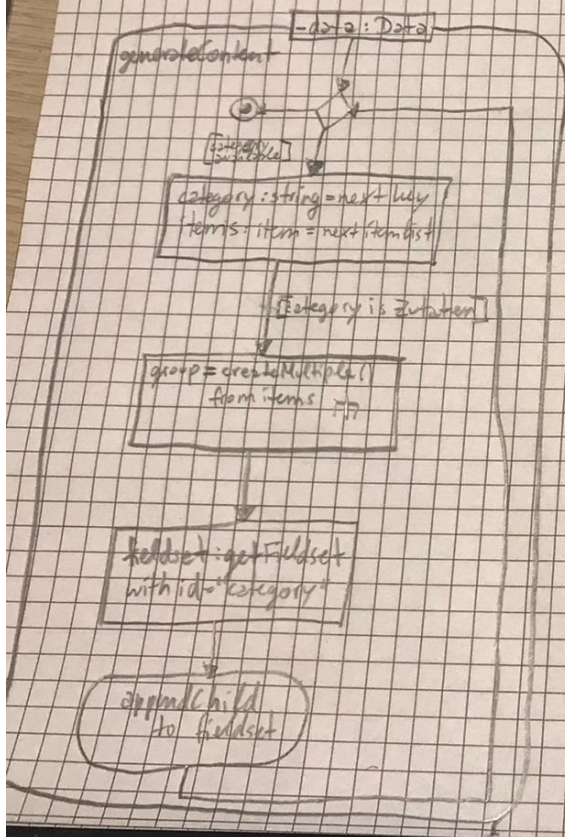 -data: Data
generateContent
[category
available]
category: string = next key
items: item = next itemlist
[Category is Zutaten]
group = createMultiple()
from items
fieldset: getFieldset
with id="category"
appendChild
to fieldset